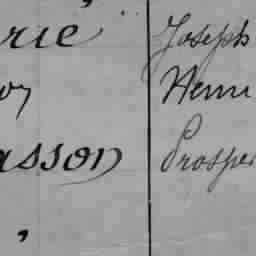 rie Joseph
on Henri
asson Prosper
,